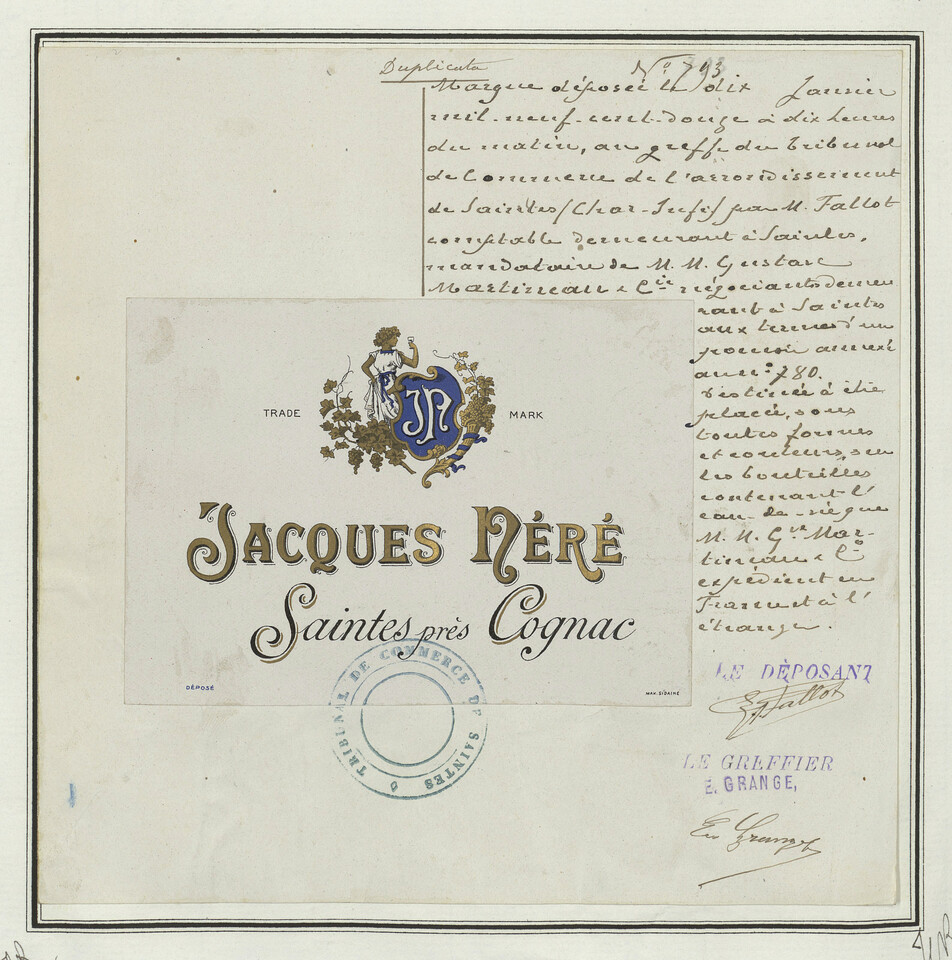 Duplicata
N° 793
Marque déposée le dix Janvier
mil-neuf-cent-douze à dix heures
du matin, au greffe du tribunal
de Commerce de l'arrondissement
de Saintes (Char-Infre) par M. Fallot
comptable demeurant à Saintes,
mandataire de M. M. Gustave
Martineau & Cie négociants demeu
rant à Saintes
aux termes d'un
pouvoir annexé
au n° 780.
Destinée à être
placée, sous
toutes formes
et couleurs, sur
les bouteilles
contenant l'
eau-de-vie que
M. M. Gve Mar-
tineau & Co
expédient en
France et à l'
étranger.
TRADE MARK
JN
JACQUES NÉRÉ
Saintes près Cognac
DÉPOSÉ
TRIBUNAL DE COMMERCE DE SAINTES
LE DÉPOSANT
E. Fallot
LE GREFFIER
E. GRANGE,